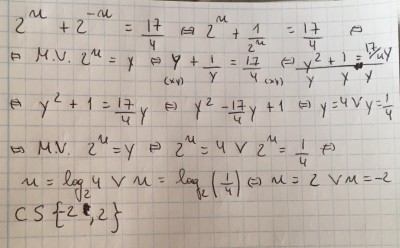 2^x + 2^-x = 17/4 ⇔ 2^x + 1/2^x = 17/4 ⇔
⇔ M.V. 2^x = y ⇔ y + 1/y = 17/4 ⇔ y²/y + 1/y = 17/4 y/y
(xy) (xy)
⇔ y² + 1 = 17/4 y ⇔ y² - 17/4 y + 1 ⇔ y = 4 ∨ y = 1/4
⇔ M.V. 2^x = y ⇔ 2^x = 4 ∨ 2^x = 1/4 ⇔
x = log₂ 4 ∨ x = log₂ (1/4) ⇔ x = 2 ∨ x = -2
CS {-2, 2}